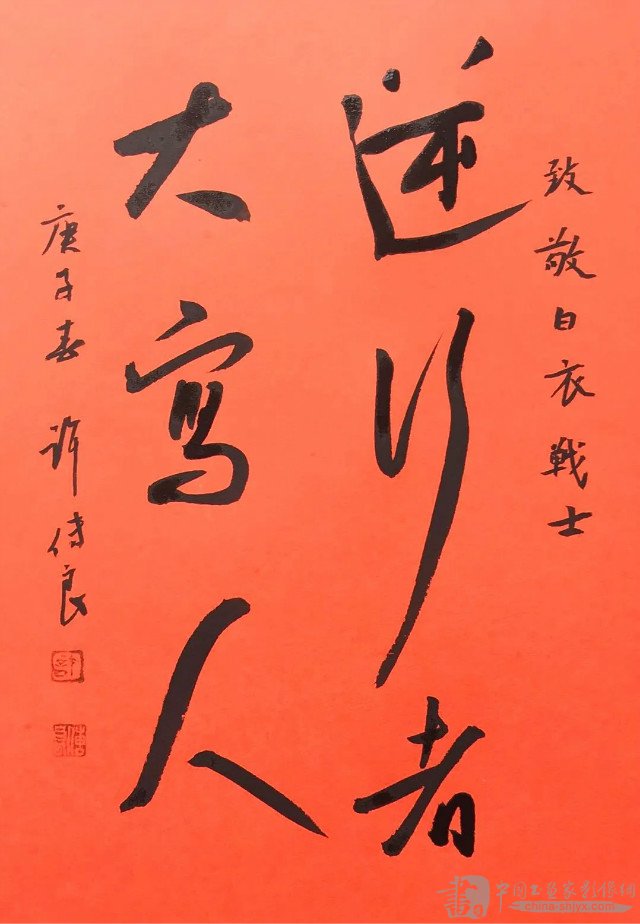 致敬白衣戰士
逆行者
大寫人
庚子春 許傳良
中国书画家影像网
china-shjyx.com